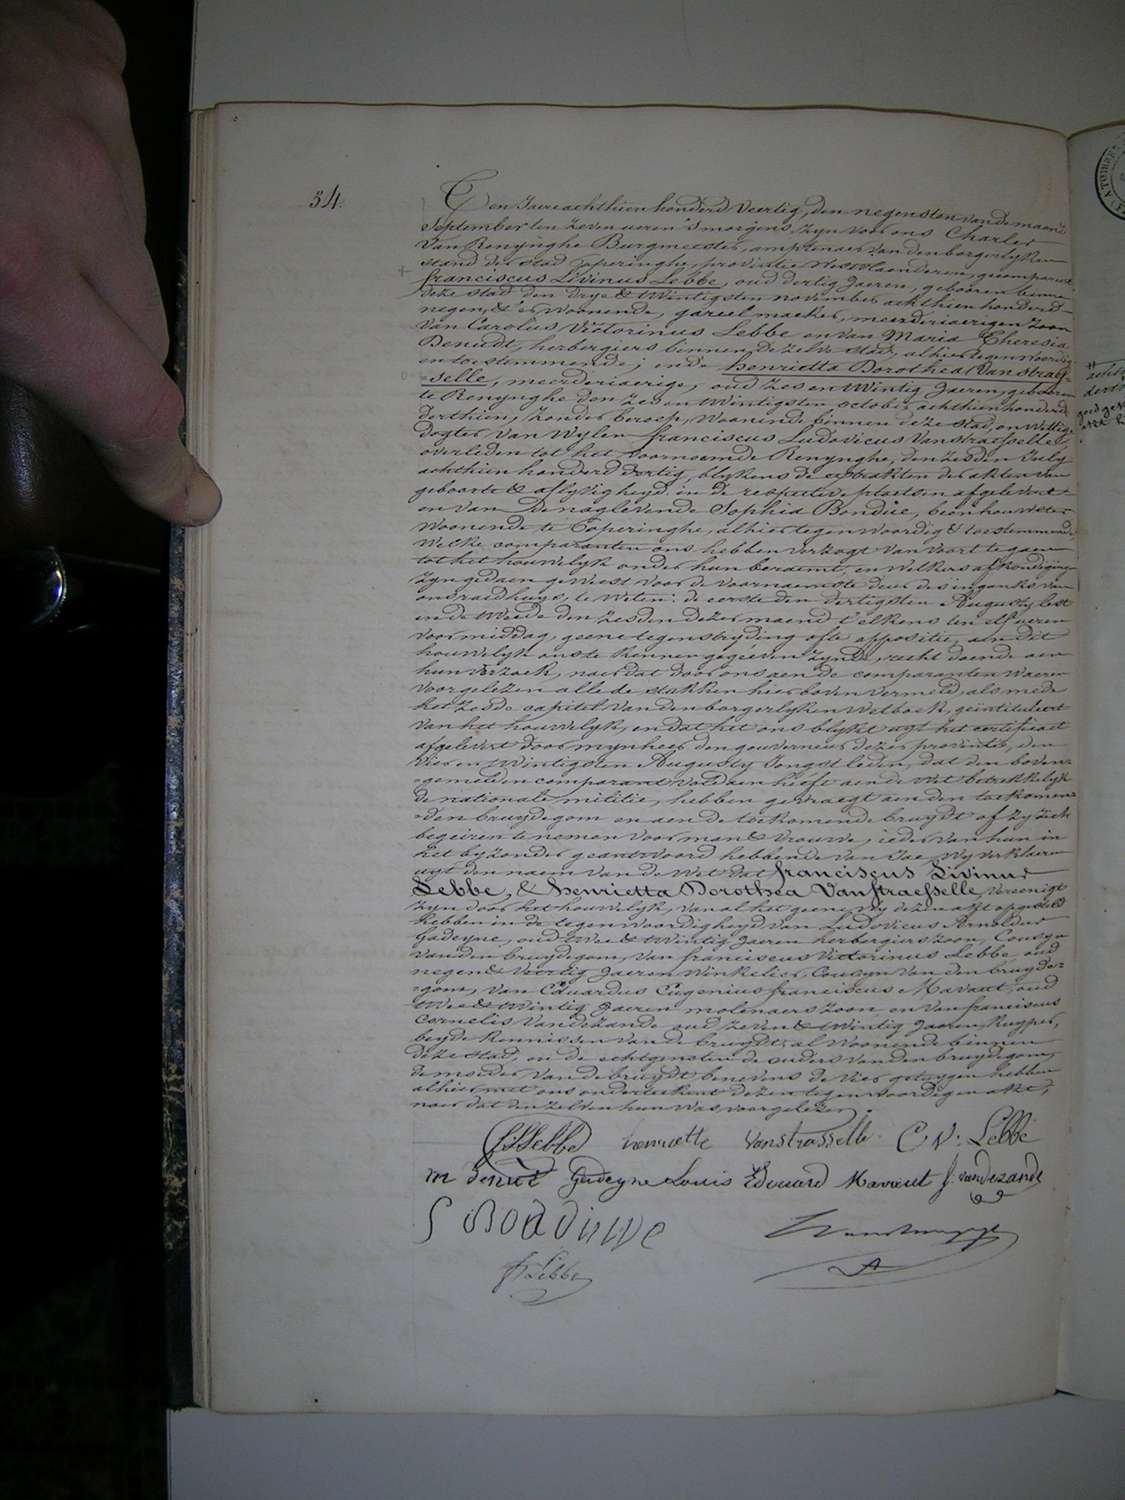 34.
Den Jaere achthien honderd veertig, den negensten van de maend
September ten zeven ueren 'smorgens, zyn voor ons Charles
Van Renynghe Burgmeester, amptenaer van den borgerlyken
stand der stad Poperinghe, provintie Westvlaenderen, gecompareert
franciscus Livinus Lebbe, oud dertig Jaeren, geboren binnen
deze stad den drye & twintigsten november achthien honderd
negen, & er woonende, gareelmaeker, meerderjaerigen zoon
van Carolus Victorinus Lebbe en van Maria Theresia
Denudt, herbergiers binnen dezelve stad, alhier tegenwoordig
en toestemmende; ende henrietta Dorothea Vanstraes-
-selle, meerderiaerige, oud zes en twintig Jaeren, geboren
te Renynghe den zes en twintigsten october achthien honderd
derthien, zonder beroep, woonende binnen deze stad, en wettige
dogter van wylen franciscus Ludovicus Vanstraesselle,
overleden tot het voornoemde Renynghe, den zesden July
achthien honderd dertig, blykens de extrakten der akten van
geboorte & aflyvigheyd in de respective plaetsen afgelevert
en van de naglevende Sophia Bonduwe, beenhouwster
woonende te Poperinghe, alhier tegenwoordig & toestemmende,
welke comparanten ons hebben verzogt van voort te gaen
tot het houwelyk onder hun beraemt, en welkers afkondiging
zyn gedaen geweest voor de voornaemste deur des ingangs van
ons raedhuys, te weten: de eerste den dertigsten Augusty lest
en de tweede den zesden dezer maend t'elkens ten elf ueren
voormiddag, geene tegenstryding ofte oppositie, aen dit
houwelyk ons te kennen gegeven zynde, recht doende aen
hun verzoek, naer dat door ons aen de comparanten waeren
voorgelezen alle de stukken hierboven vermeld, als mede
het zesde capitel van den borgerlyken Wetboek, geintituleert
van het houwelyk, en dat het ons blykt uyt het certificaet
afgelevert door mynheer den gouverneur dezer provintie, den
vier en twintigsten Augusty Jongstleden, dat den boven-
-gemelden comparant voldaen heeft aen de wet betrekkelyk
de nationale militie, hebben gevraegt aen den toekomen-
-den bruydegom en aen de toekomende bruydt of zy zich
begeiren te nemen voor man & vrouwe, ieder van hun in
het byzonder geantwoord hebbende van Jae, wy verklaeren
uyt den naem van de Wet dat franciscus Livinus
Lebbe, & henrietta Dorothea Vanstraesselle, vereenigt
zyn door het houwelyk, van al het geene wy dezen akt opgesteld
hebben in de tegenwoordigheyd van Ludovicus Arnoldus
Gadeyne, oud twee & twintig Jaeren herbergiers zoon, Cousyn
van den bruydegom, van franciscus Victorinus Lebbe oud
negen & veertig Jaeren Winkelier, Cousyn van den bruyde-
-gom, van Eduardus Eugenius franciscus Mavaut, oud
twee & twintig Jaeren molenaers zoon en van franciscus
Cornelis Vandezande oud zeven & twintig Jaeren, Kuyper,
beyde Kennissen van de bruydt, al woonende binnen
deze stad, en de echtgenoten de ouders van den bruydegom,
de moeder van de bruydt benevens de vier getuygen hebben
alhier met ons onderteekent dezen tegenwoordigen akt,
naer dat den zelven hun was voorgelezen.
fLLebbe henriette Vanstraesselle. C V: Lebbe
m denut Gadeyne Louis Edouard Mavaut f. vandezande
S Bonduwe
f Lebbe